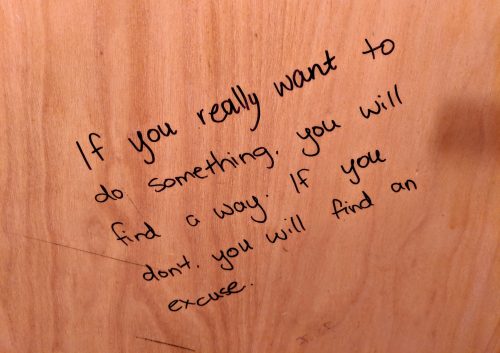 If you really want to
do something, you will
find a way. If you
don't, you will find an
excuse.